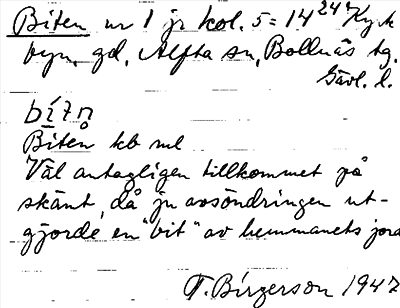 Biten nr 1 jr kol. 5 = 14 24 Kyrk
byn, gd, Alfta sn, Bollnäs tg.
Gävl. l.
bítn
Bīten kb ml
Väl antagligen tillkommet på
skämt, då ju avsöndringen ut-
gjorde en "bit" av hemmanets jord
T. Birgerson 1947